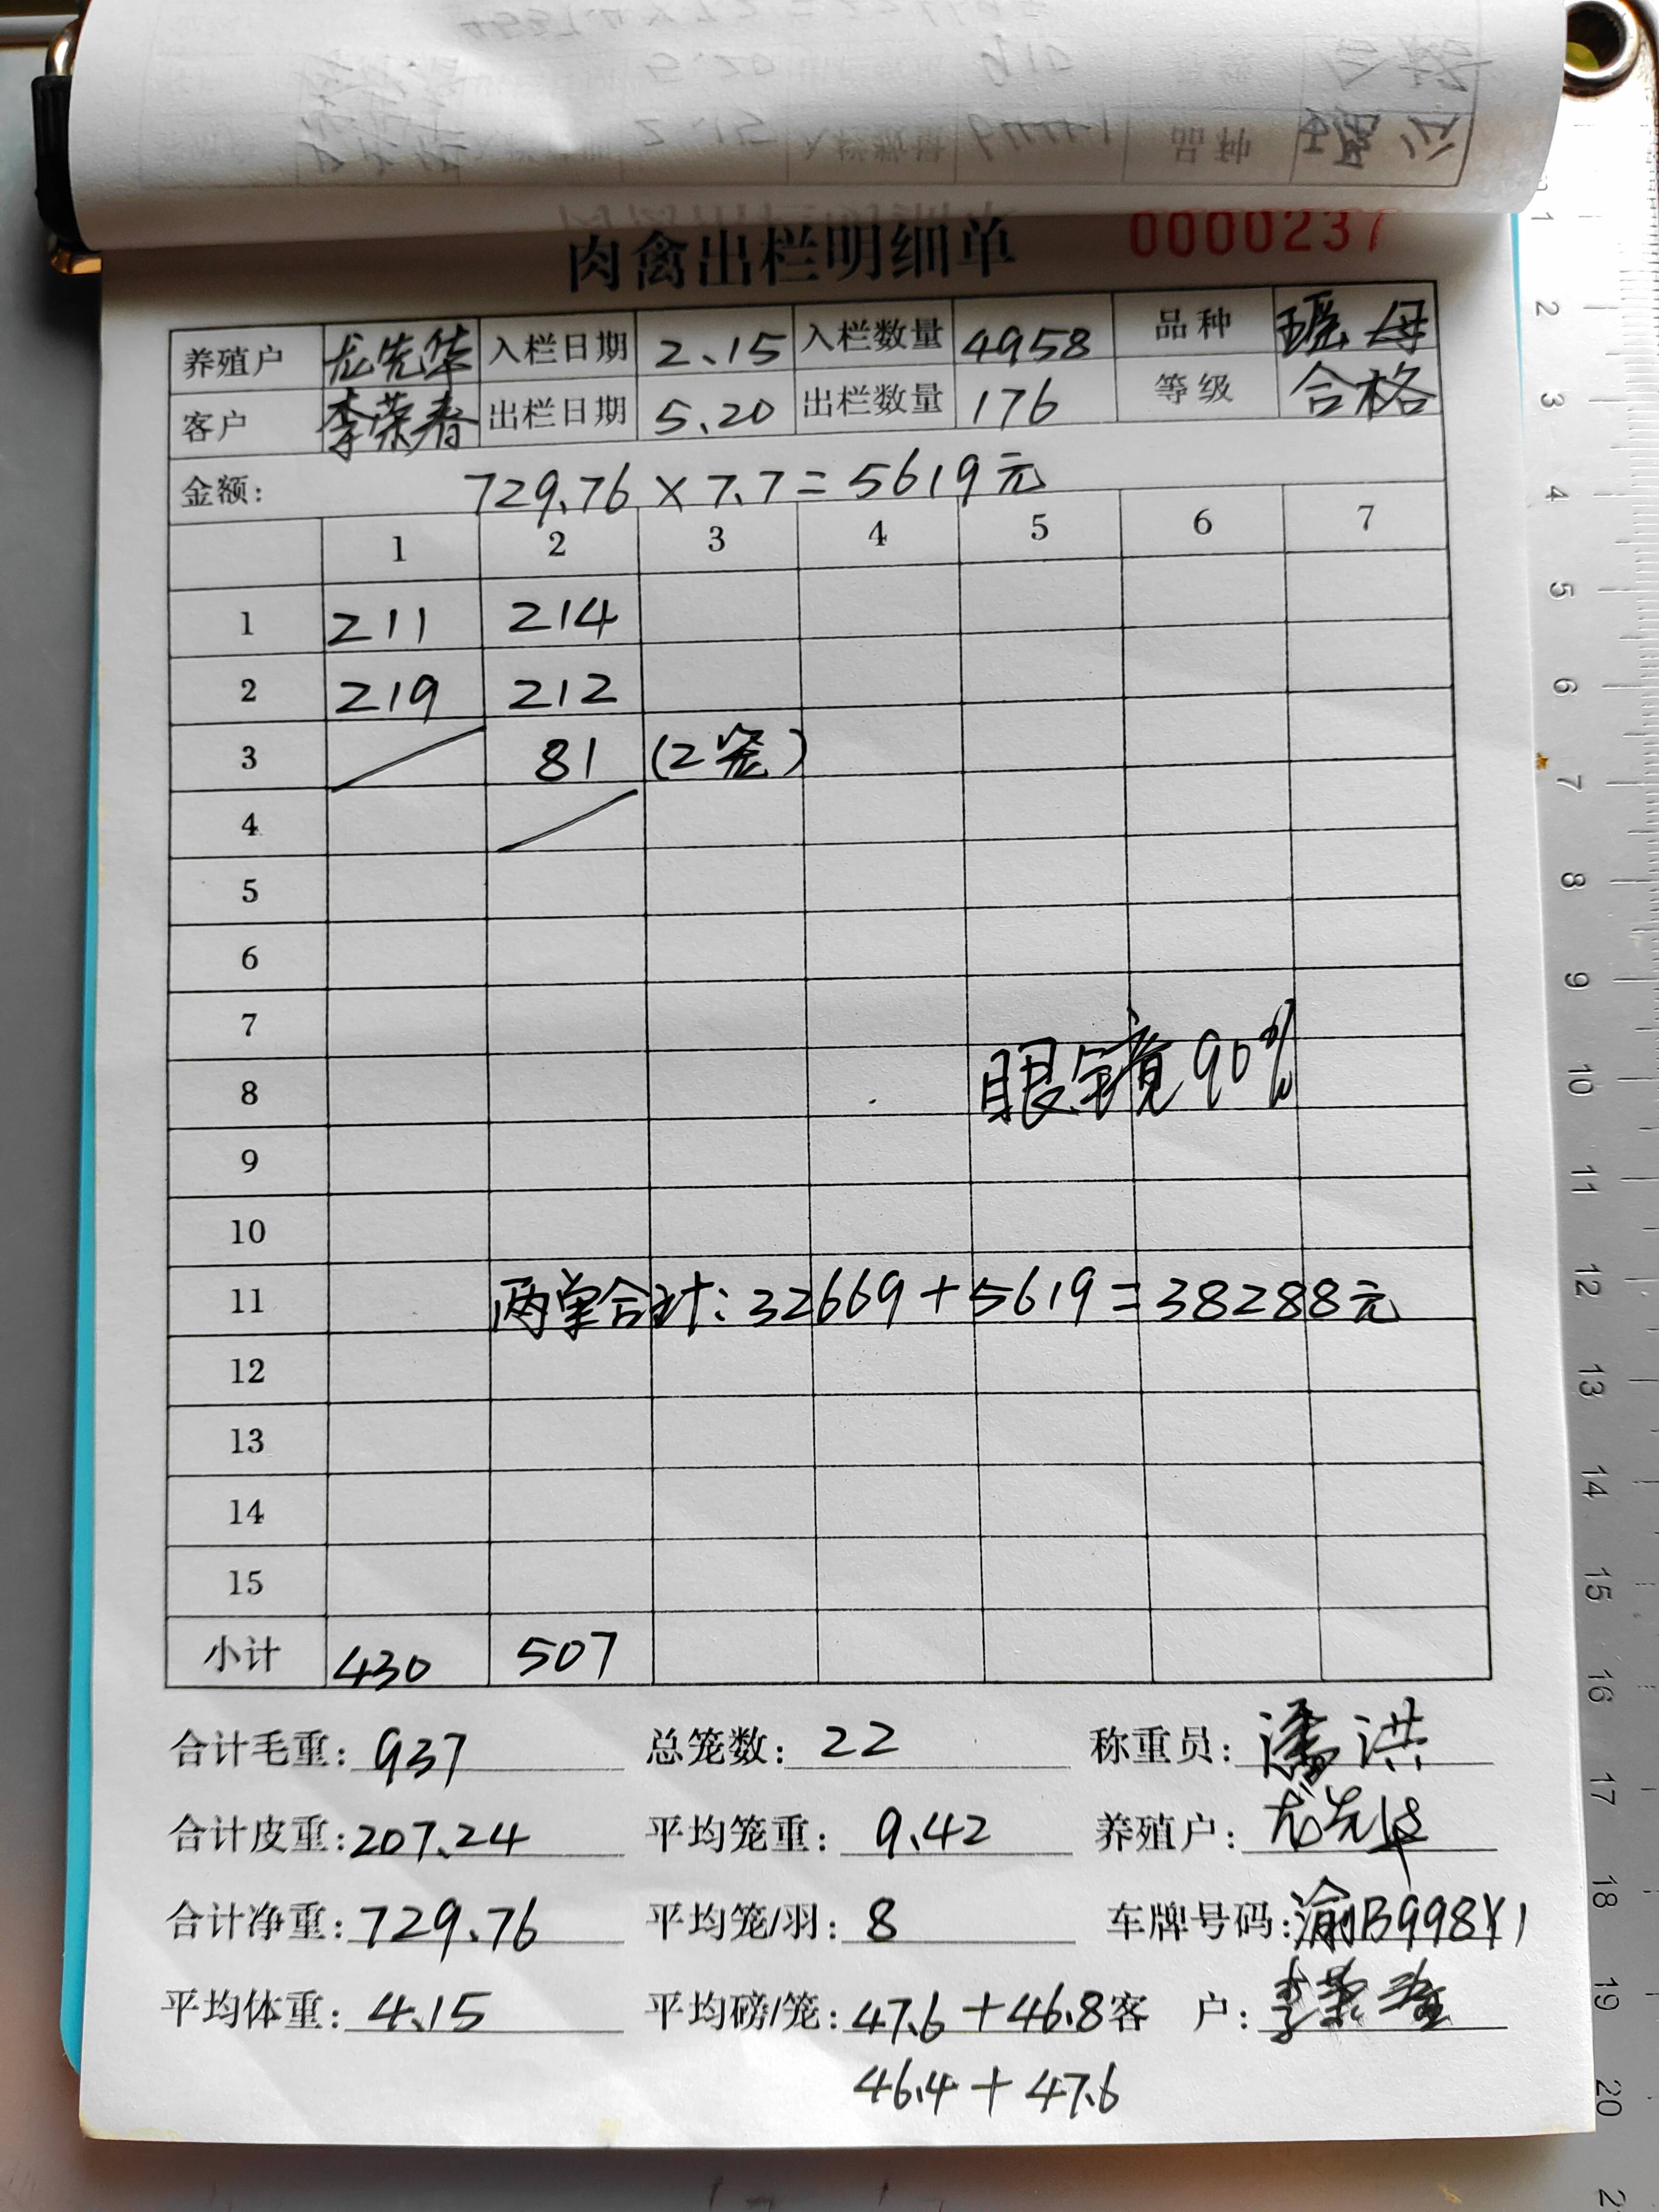 肉禽出栏明细单 0000237
养殖户 龙先华 入栏日期 2.15 入栏数量 4958 品种 瑶母
客户 李荣春 出栏日期 5.20 出栏数量 176 等级 合格
金额: 729.76 × 7.7 = 5619元
1 2 3 4 5 6 7
1 211 214
2 219 212
3 81 (2笼)
4
5
6
7
8 眼镜90%
9
10
11 两单合计: 32669 + 5619 = 38288元
12
13
14
15
小计 430 507
合计毛重: 937 总笼数: 22 称重员: 潘洪
合计皮重: 207.24 平均笼重: 9.42 养殖户: 龙先华
合计净重: 729.76 平均笼/羽: 8 车牌号码: 渝B998Y1
平均体重: 4.15 平均磅/笼: 47.6 + 46.8 客 户: 李荣春
46.4 + 47.6
1
2
3
4
5
6
7
8
9
10
11
12
13
14
15
16
17
18
19
20